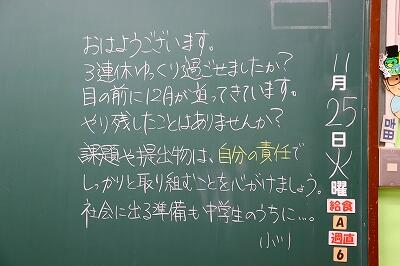 おはようございます。
3連休ゆっくり過ごせましたか?
目の前に12月が迫ってきています。
やり残したことはありませんか?
課題や提出物は、自分の責任で
しっかりと取り組むことを心がけましょう。
社会に出る準備も中学生のうちに…。
小川
11
月
25
日
火
曜
給食
A
週直
6